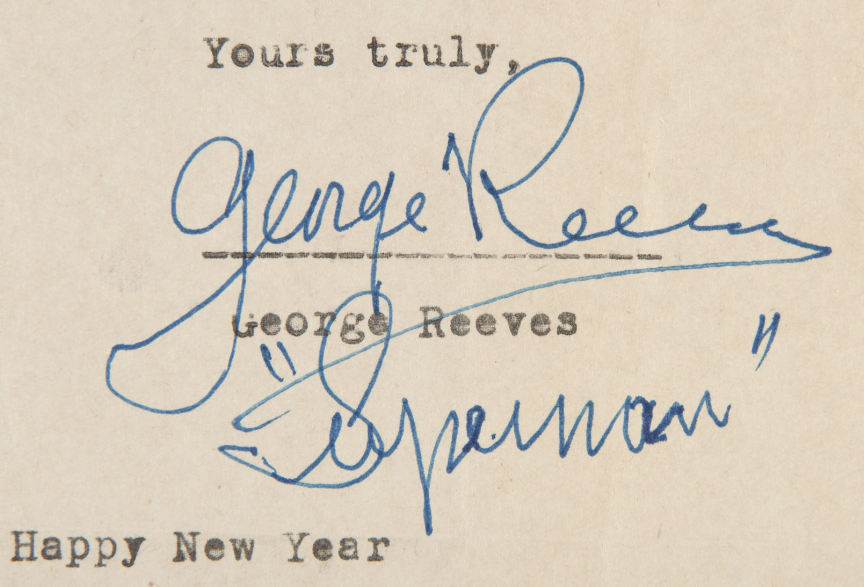 Yours truly,
George Reeves
George Reeves
"Superman"
Happy New Year